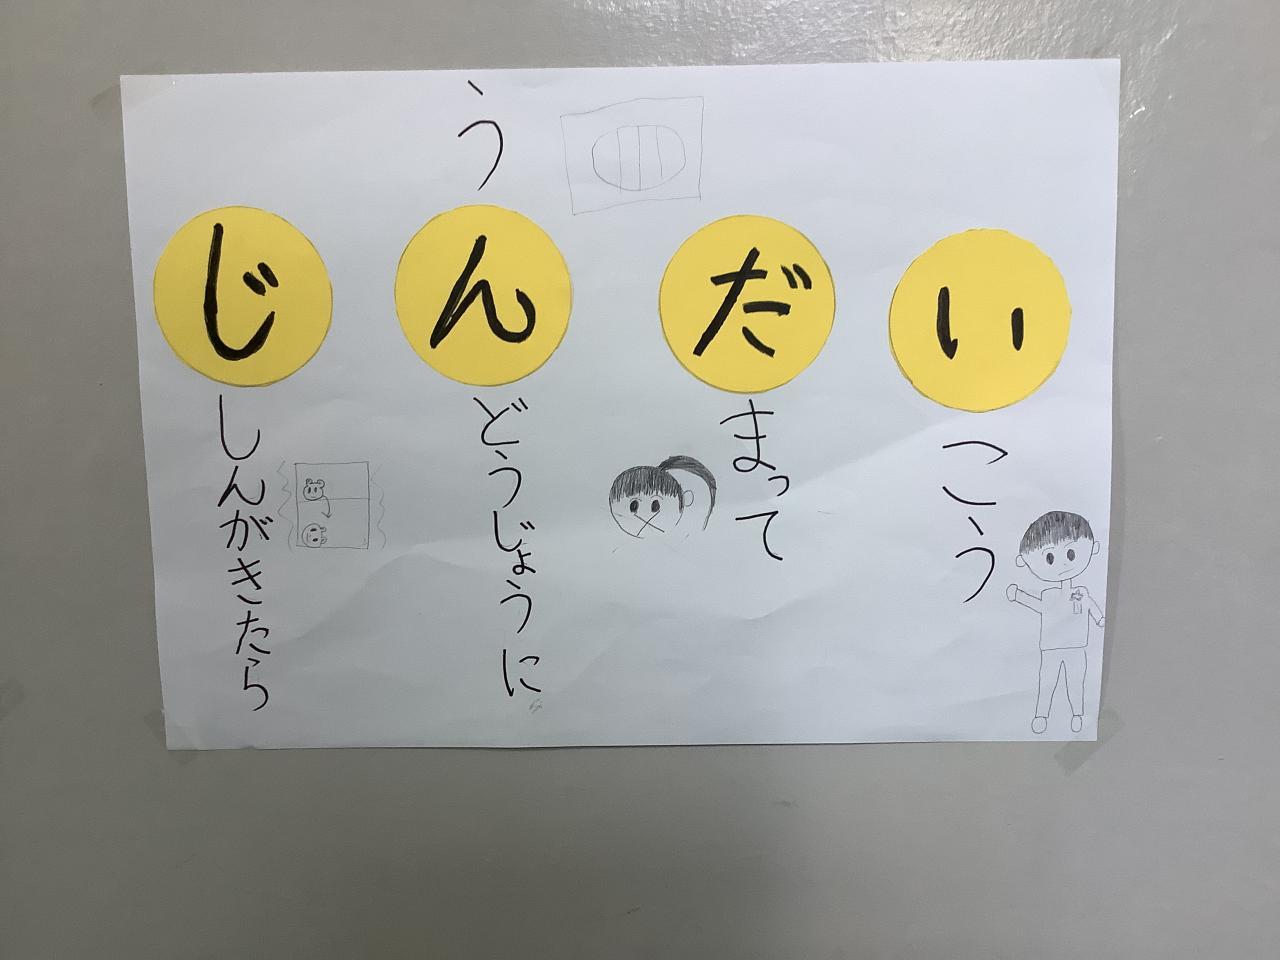 じしんがきたら
うんどうじょうに
だまって
いこう